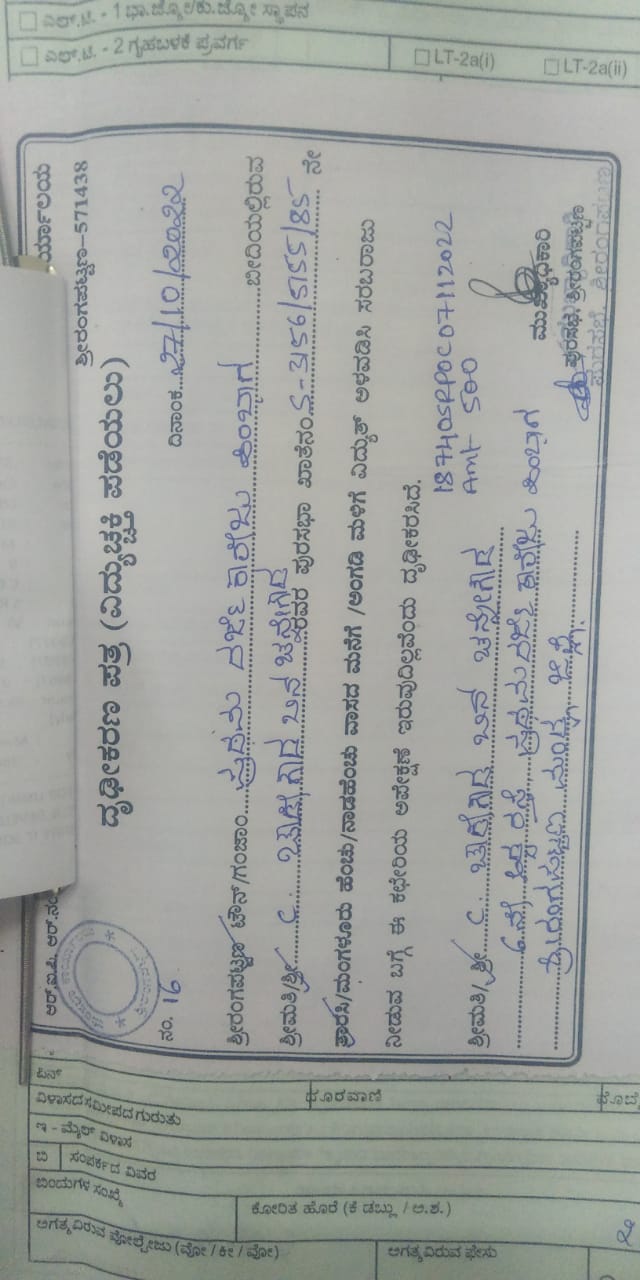 ಎಲ್.ಟಿ. - 1 ಭಾ.ಜ್ಯೋ/ಕು.ಜ್ಯೋ ಸ್ಥಾಪನ
ಎಲ್.ಟಿ. - 2 ಗೃಹಬಳಕೆ ಪ್ರವರ್ಗ
LT-2a(i)
LT-2a(ii)
ಆರ್.ಐ.ಪಿ. ಆರ್.ನಂ
ರ್ಯಾಲಯ
ಶ್ರೀರಂಗಪಟ್ಟಣ-571438
ದೃಢೀಕರಣ ಪತ್ರ (ವಿದ್ಯುಚ್ಛಕ್ತಿ ಪಡೆಯಲು)
ನಂ. 16
ದಿನಾಂಕ 27/10/2022
ಶ್ರೀರಂಗಪಟ್ಟಣ ಟೌನ್/ಗಂಜಾಂ ಪ್ರಥಮ ದರ್ಜೆ ಕಾಲೇಜು ಹಿಂಭಾಗ ಬೀದಿಯಲ್ಲಿರುವ
ಶ್ರೀಮತಿ/ಶ್ರೀ C. ಬಿನ್ ರವರ ಪುರಸಭಾ ಖಾತೆನಂ. 5-3156/5155/85 ನೇ
ತಾರಸಿ/ಮಂಗಳೂರು ಹೆಂಚು/ನಾಡಹೆಂಚು ವಾಸದ ಮನೆಗೆ /ಅಂಗಡಿ ಮಳಿಗೆ ವಿದ್ಯುತ್ ಅಳವಡಿಸಿ ಸರಬರಾಜು
ನೀಡುವ ಬಗ್ಗೆ ಈ ಕಛೇರಿಯ ಅಪೇಕ್ಷಣೆ ಇರುವುದಿಲ್ಲವೆಂದು ದೃಢೀಕರಿಸಿದೆ.
18740SRPOC07112022
Amt- 500
ಶ್ರೀಮತಿ/ಶ್ರೀ C. ಬಿನ್
ಪ್ರಥಮ ದರ್ಜೆ ಕಾಲೇಜು ಹಿಂಭಾಗ
ಶ್ರೀರಂಗಪಟ್ಟಣ
ಮುಖ್ಯಾಧಿಕಾರಿ
ಪುರಸಭೆ, ಶ್ರೀರಂಗಪಟ್ಟಣ
ಪಿನ್
ವಿಳಾಸದ ಸಮೀಪದ ಗುರುತು
ದೂರವಾಣಿ
ಇ - ಮೈಲ್ ವಿಳಾಸ
ಬಿ
ಸಂಪರ್ಕದ ವಿವರ
ಬಿಂದುಗಳ ಸಂಖ್ಯೆ
ಕೋರಿತ ಹೊರೆ (ಕೆ ಡಬ್ಲು / ಅ.ಶ.)
ಅಗತ್ಯವಿರುವ ವೋಲ್ಟೇಜು (ವೋ / ಕೀ / ವೋ)
ಅಗತ್ಯವಿರುವ ಫೇಸು